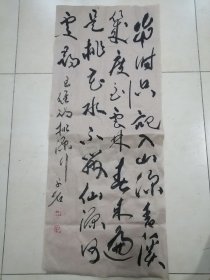 當時只記入山深青溪
幾度到雲林春來遍
是桃花水不辨仙源何
處尋
王維詞桃源行